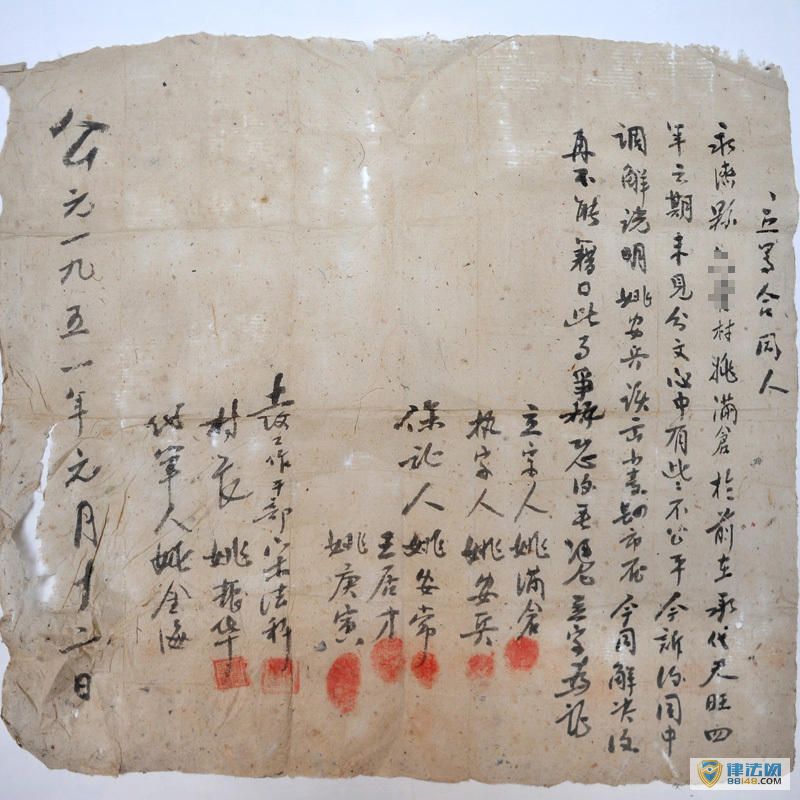 立写合同人
永济县村姚满倉於前在承代元旺四
年云期未見分文心中有些々不公平今訴治同中
調解説明姚安兵该出小麦市石今同解决後
再不能籍口此事爭執恐後無凴立字为証
立字人姚满倉
执字人姚安兵
保証人姚安常
王居才
姚庚寅
土改工作干部宋法科
村长姚振华
代笔人姚金海
公元一九五一年元月十二日
律法网
98148.COM